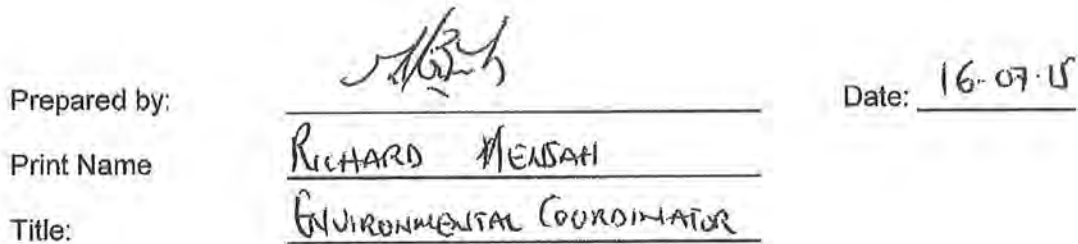 Prepared by: Date: 16-07-15
Print Name RICHARD MENSAH
Title: ENVIRONMENTAL COORDINATOR